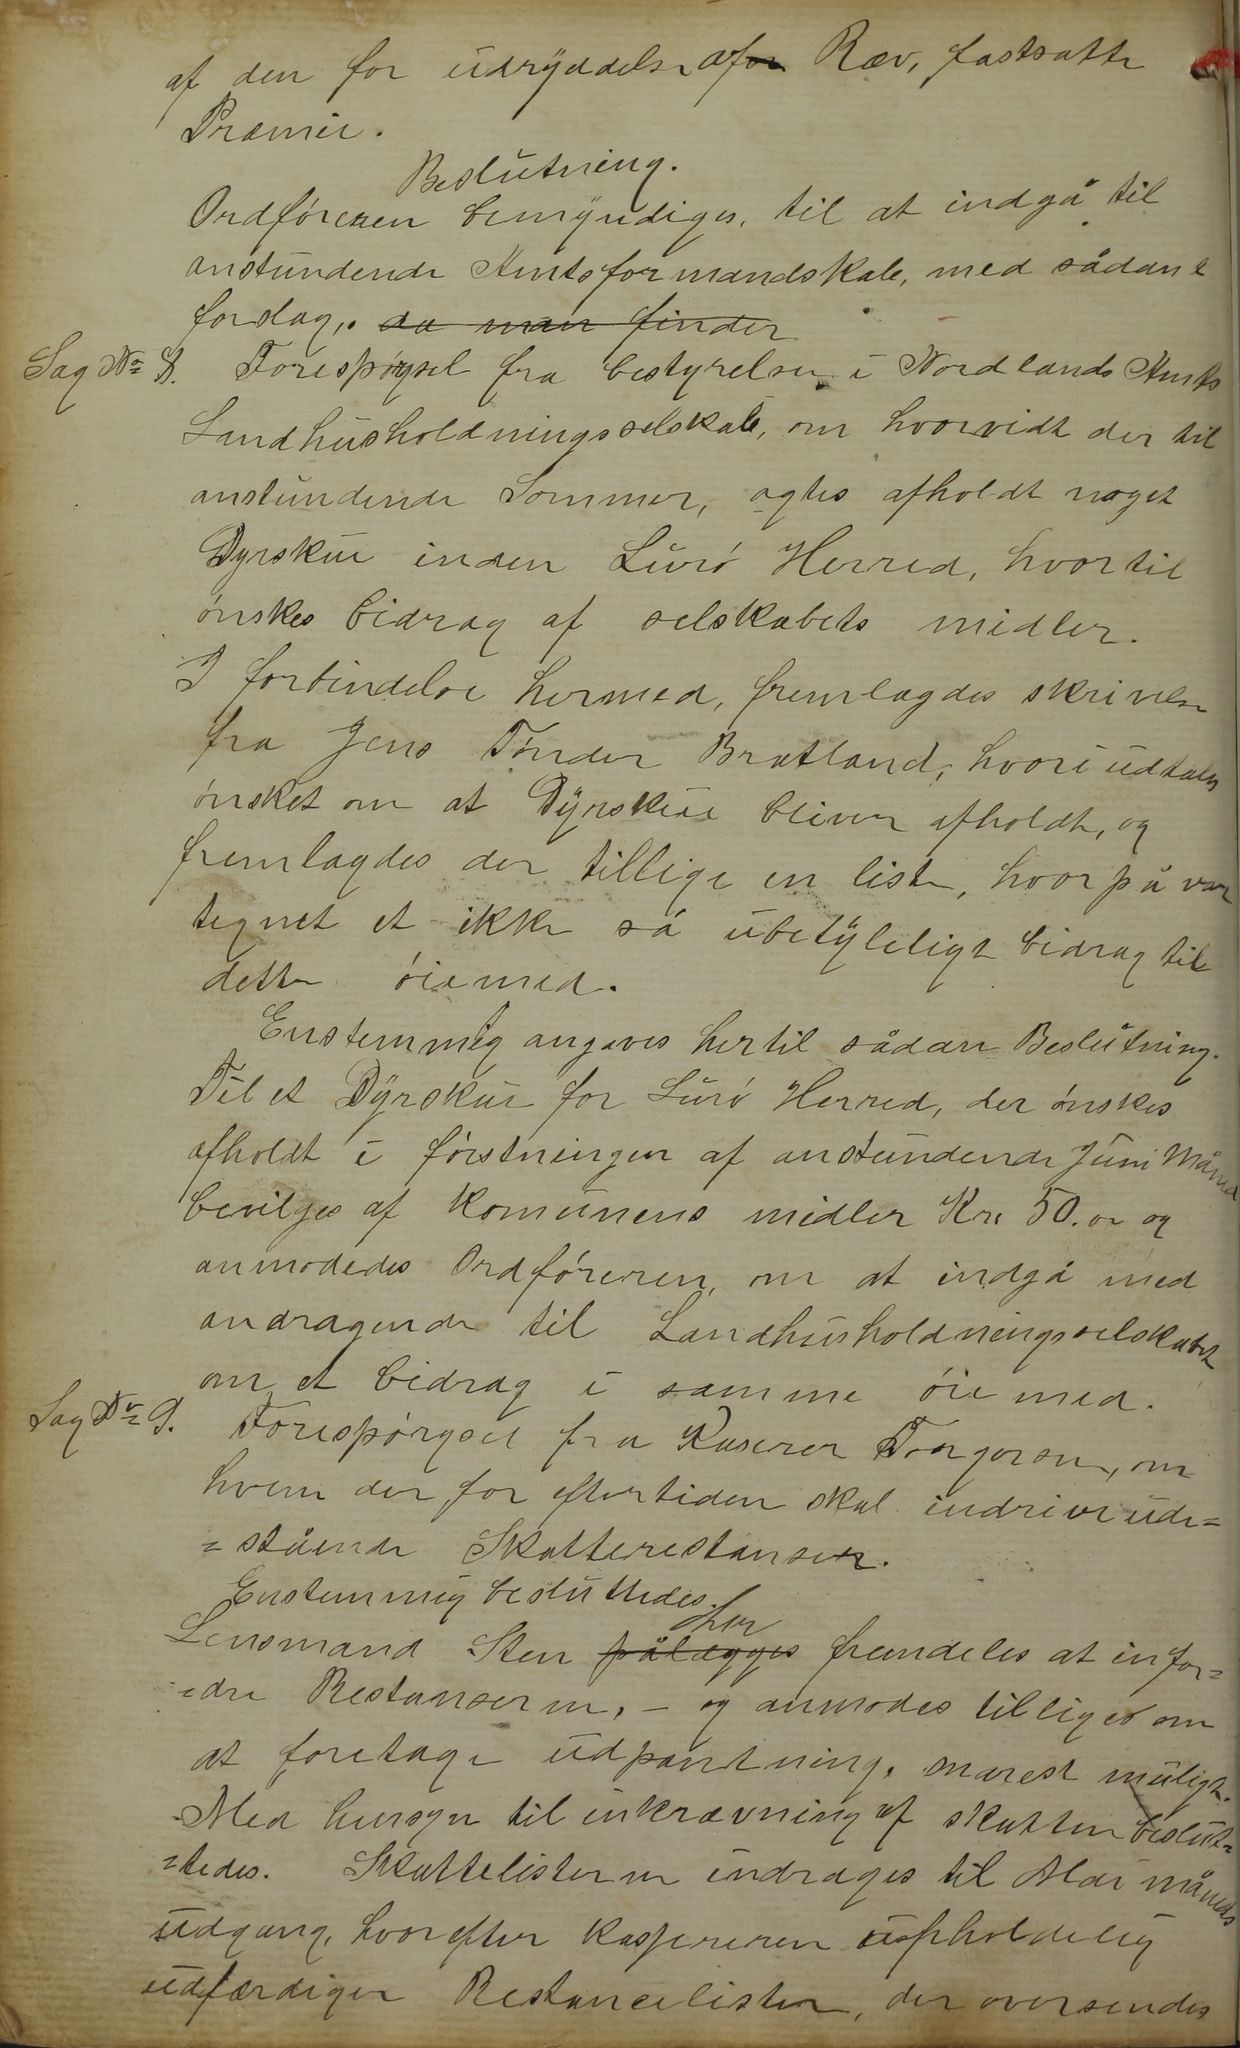 af den for udryddelse af <del>for</del> Ræv, fastsatte
Præmie.
Beslutning.
Ordføreren bemyndiges, til at indgå til
anstundende Amtsformandskab, med sådant
forslag, <del>da man finder</del>
Sag No 8. Forespørgsel fra bestyrelsen i Nordlands Amts
Landhusholdningsselskab, om hvorvidt der til
anstundende Sommer, agtes afholdt noget
Dyrskue inden Lurø Herred, hvortil
ønskes bidrag af selskabets midler.
I forbindelse hermed, fremlagdes skrivelse
fra Jens Tønder Bratland, hvori udtales
ønsket om at Dyrskue bliver afholdt, og
fremlagdes der tillige en liste, hvorpå var
tegnet et ikke så ubetydeligt bidrag til
dette øiemed.
Enstemmig angaves hertil sådan Beslutning.
Til et Dyrskue for Lurø Herred, der ønskes
afholdt i førstningen af anstundende Juni Måned
bevilges af Komunens midler Kr. 50.00 og
anmodedes Ordføreren, om at indgå med
andragende til Landhusholdningsselskabet
om et bidrag i samme øiemed.
Sag No 9. Forespørgsel fra Kaserer Torgersen, om
hvem der for eftertiden skal indrive ude=
=stående Skatterestanser.
Enstemmig besluttedes.
Lensmand Sten <del>pålægges</del> har fremdeles at infor=
=dre Restanserne, - og anmodes tilliges om
at foretage udpantning, snarest muligt.
Med hensyn til inkrævning af skatten beslut=
=tedes. Skattelisterne inddrages til Mai måneds
udgang, hvorefter kassereren uopholdelig
udfærdiger Restancelister, der oversendes